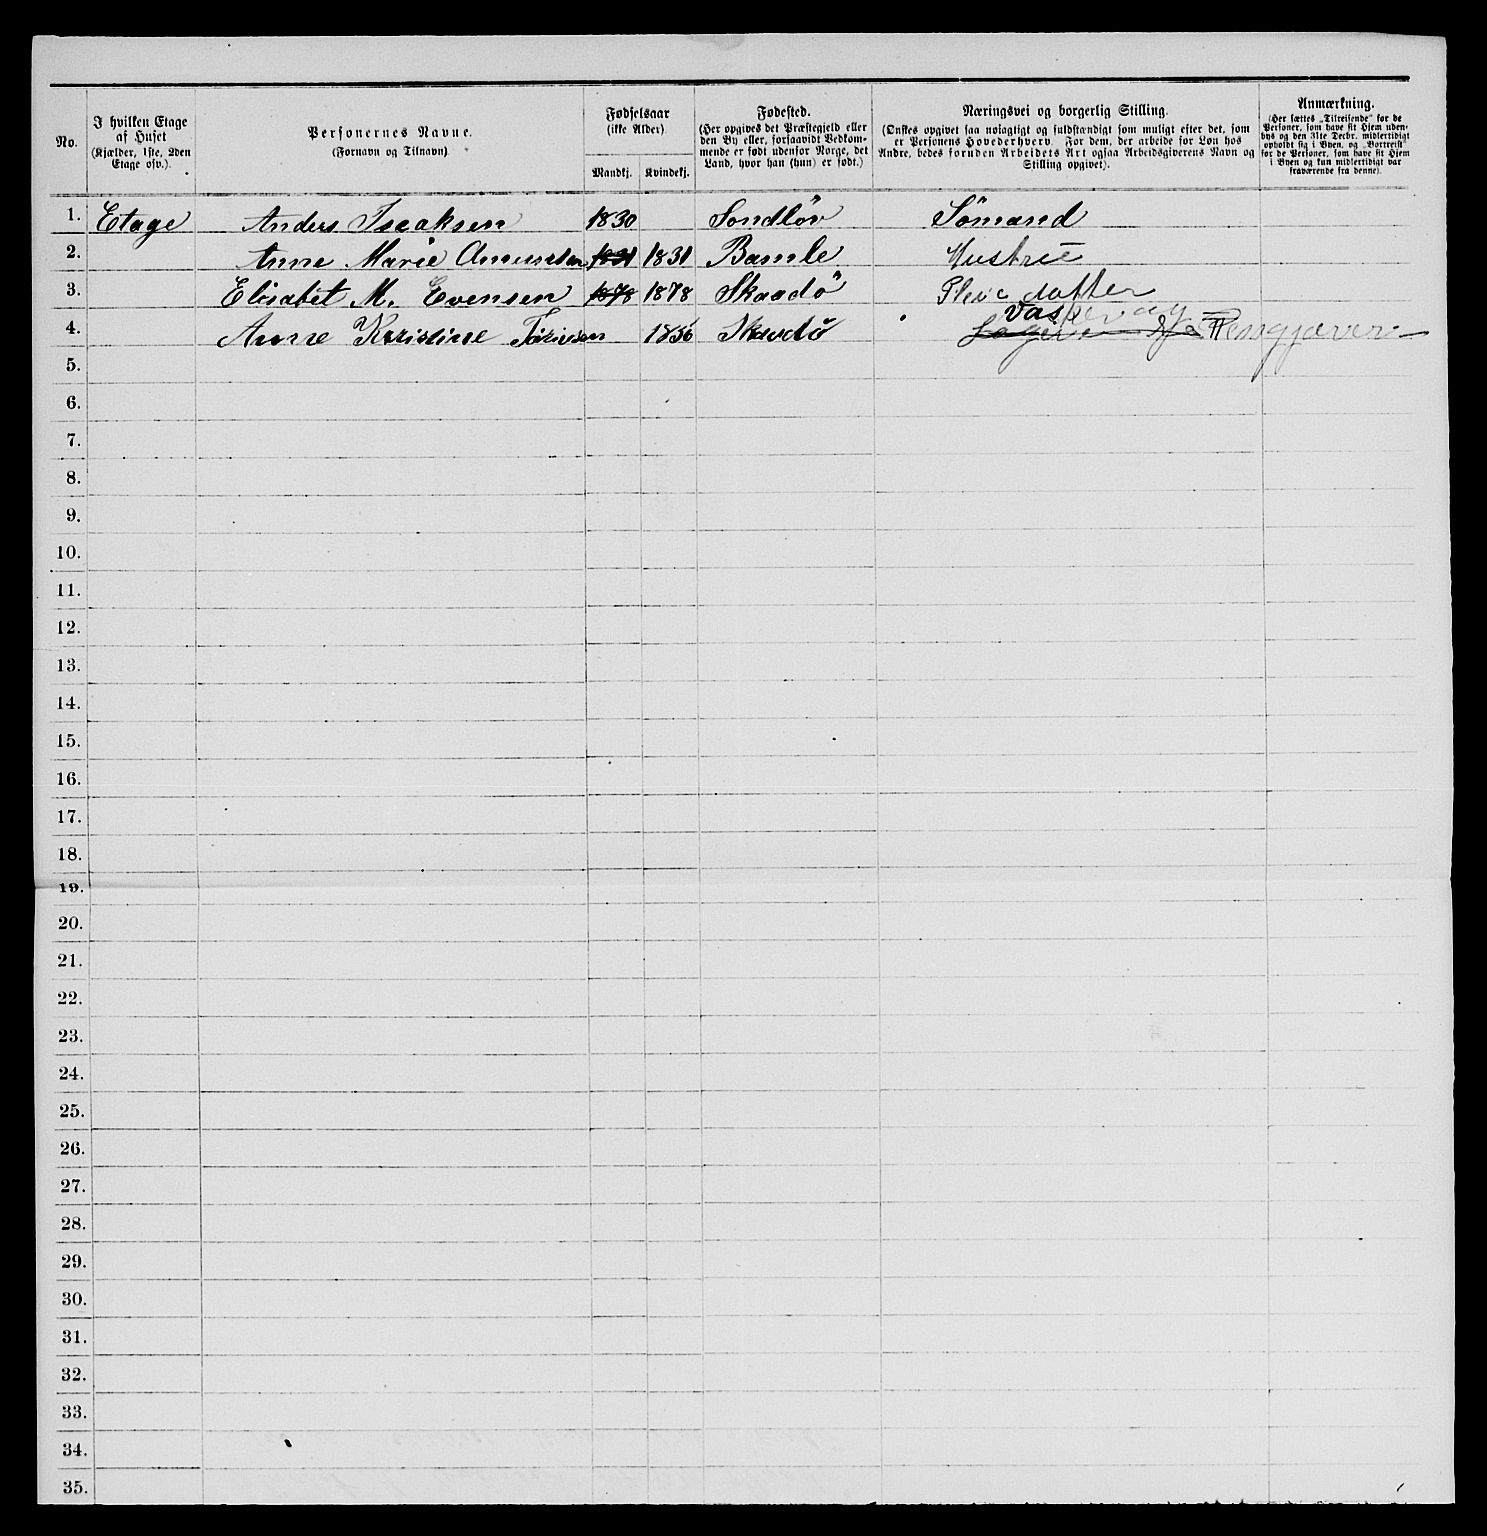 No.
I hvilken Etage af Huset (Kjælder, 1ste, 2den Etage osv.).
Personernes Navne. (Fornavn og Tilnavn)
Fødselsaar (ikke Alder). Mandkj. Kvindekj.
Fødested. (Her opgives det Præstegjeld eller den By eller, forsaavidt Vedkommende er født udenfor Norge, det Land, hvor han (hun) er født.)
Næringsvei og borgerlig Stilling. (Ønskes opgivet saa nøiagtigt og fuldstændigt som muligt efter det, som er Personens Hovederhverv. For dem, der arbeide for Løn hos Andre, bedes foruden Arbeidets Art ogsaa Arbeidsgiverens Navn og Stilling opgivet).
Anmærkning. (Her sættes „Tilreisende" for de Personer, som have sit Hjem udenbys og den 31te Decbr. midlertidigt opholdt sig i Byen, og „Bortreist" for de Personer, som have sit Hjem i Byen og kun midlertidigt var fraværende fra denne).
1. Etage Anders Isaaksen 1830 Sondløv Sömand
2. Anne Marie Amundsen 1831 1831 Bamle Hustru
3. Elisabet M. Evensen 1878 1878 Skaadö Pleiedatter
4. Anne Kristine 1836 Skaadö Vasker og Rengjører
5.
6.
7.
8.
9.
10.
11.
12.
13.
14.
15.
16.
17.
18.
19.
20.
21.
22.
23.
24.
25.
26.
27.
28.
29.
30.
31.
32.
33.
34.
35.